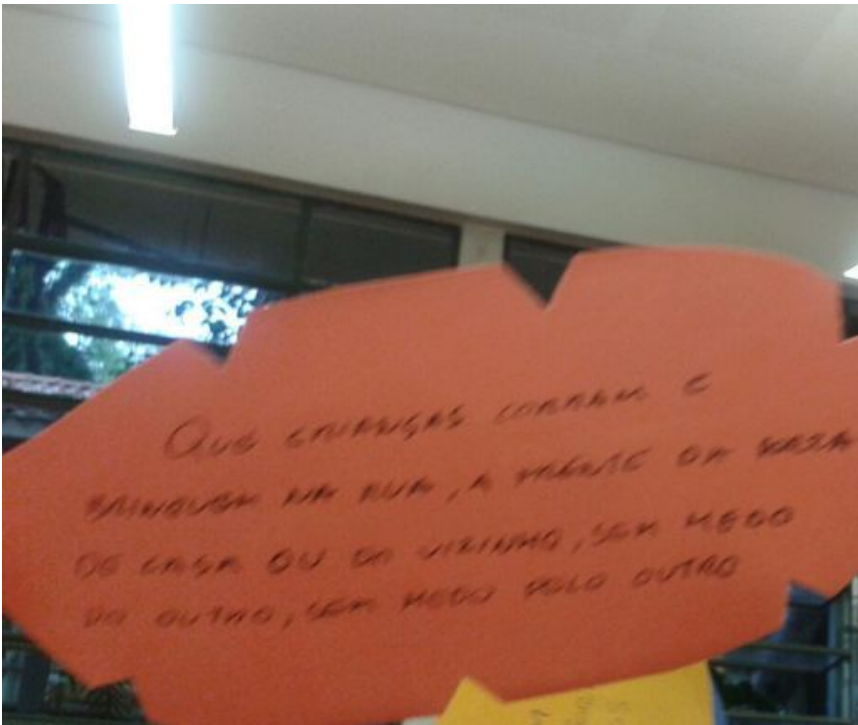 QUE CRIANÇAS CORRAM E
BRINQUEM NA RUA, A FRENTE DA
DE CASA OU DO VIZINHO, SEM MEDO
DO OUTRO, SEM MEDO PELO OUTRO